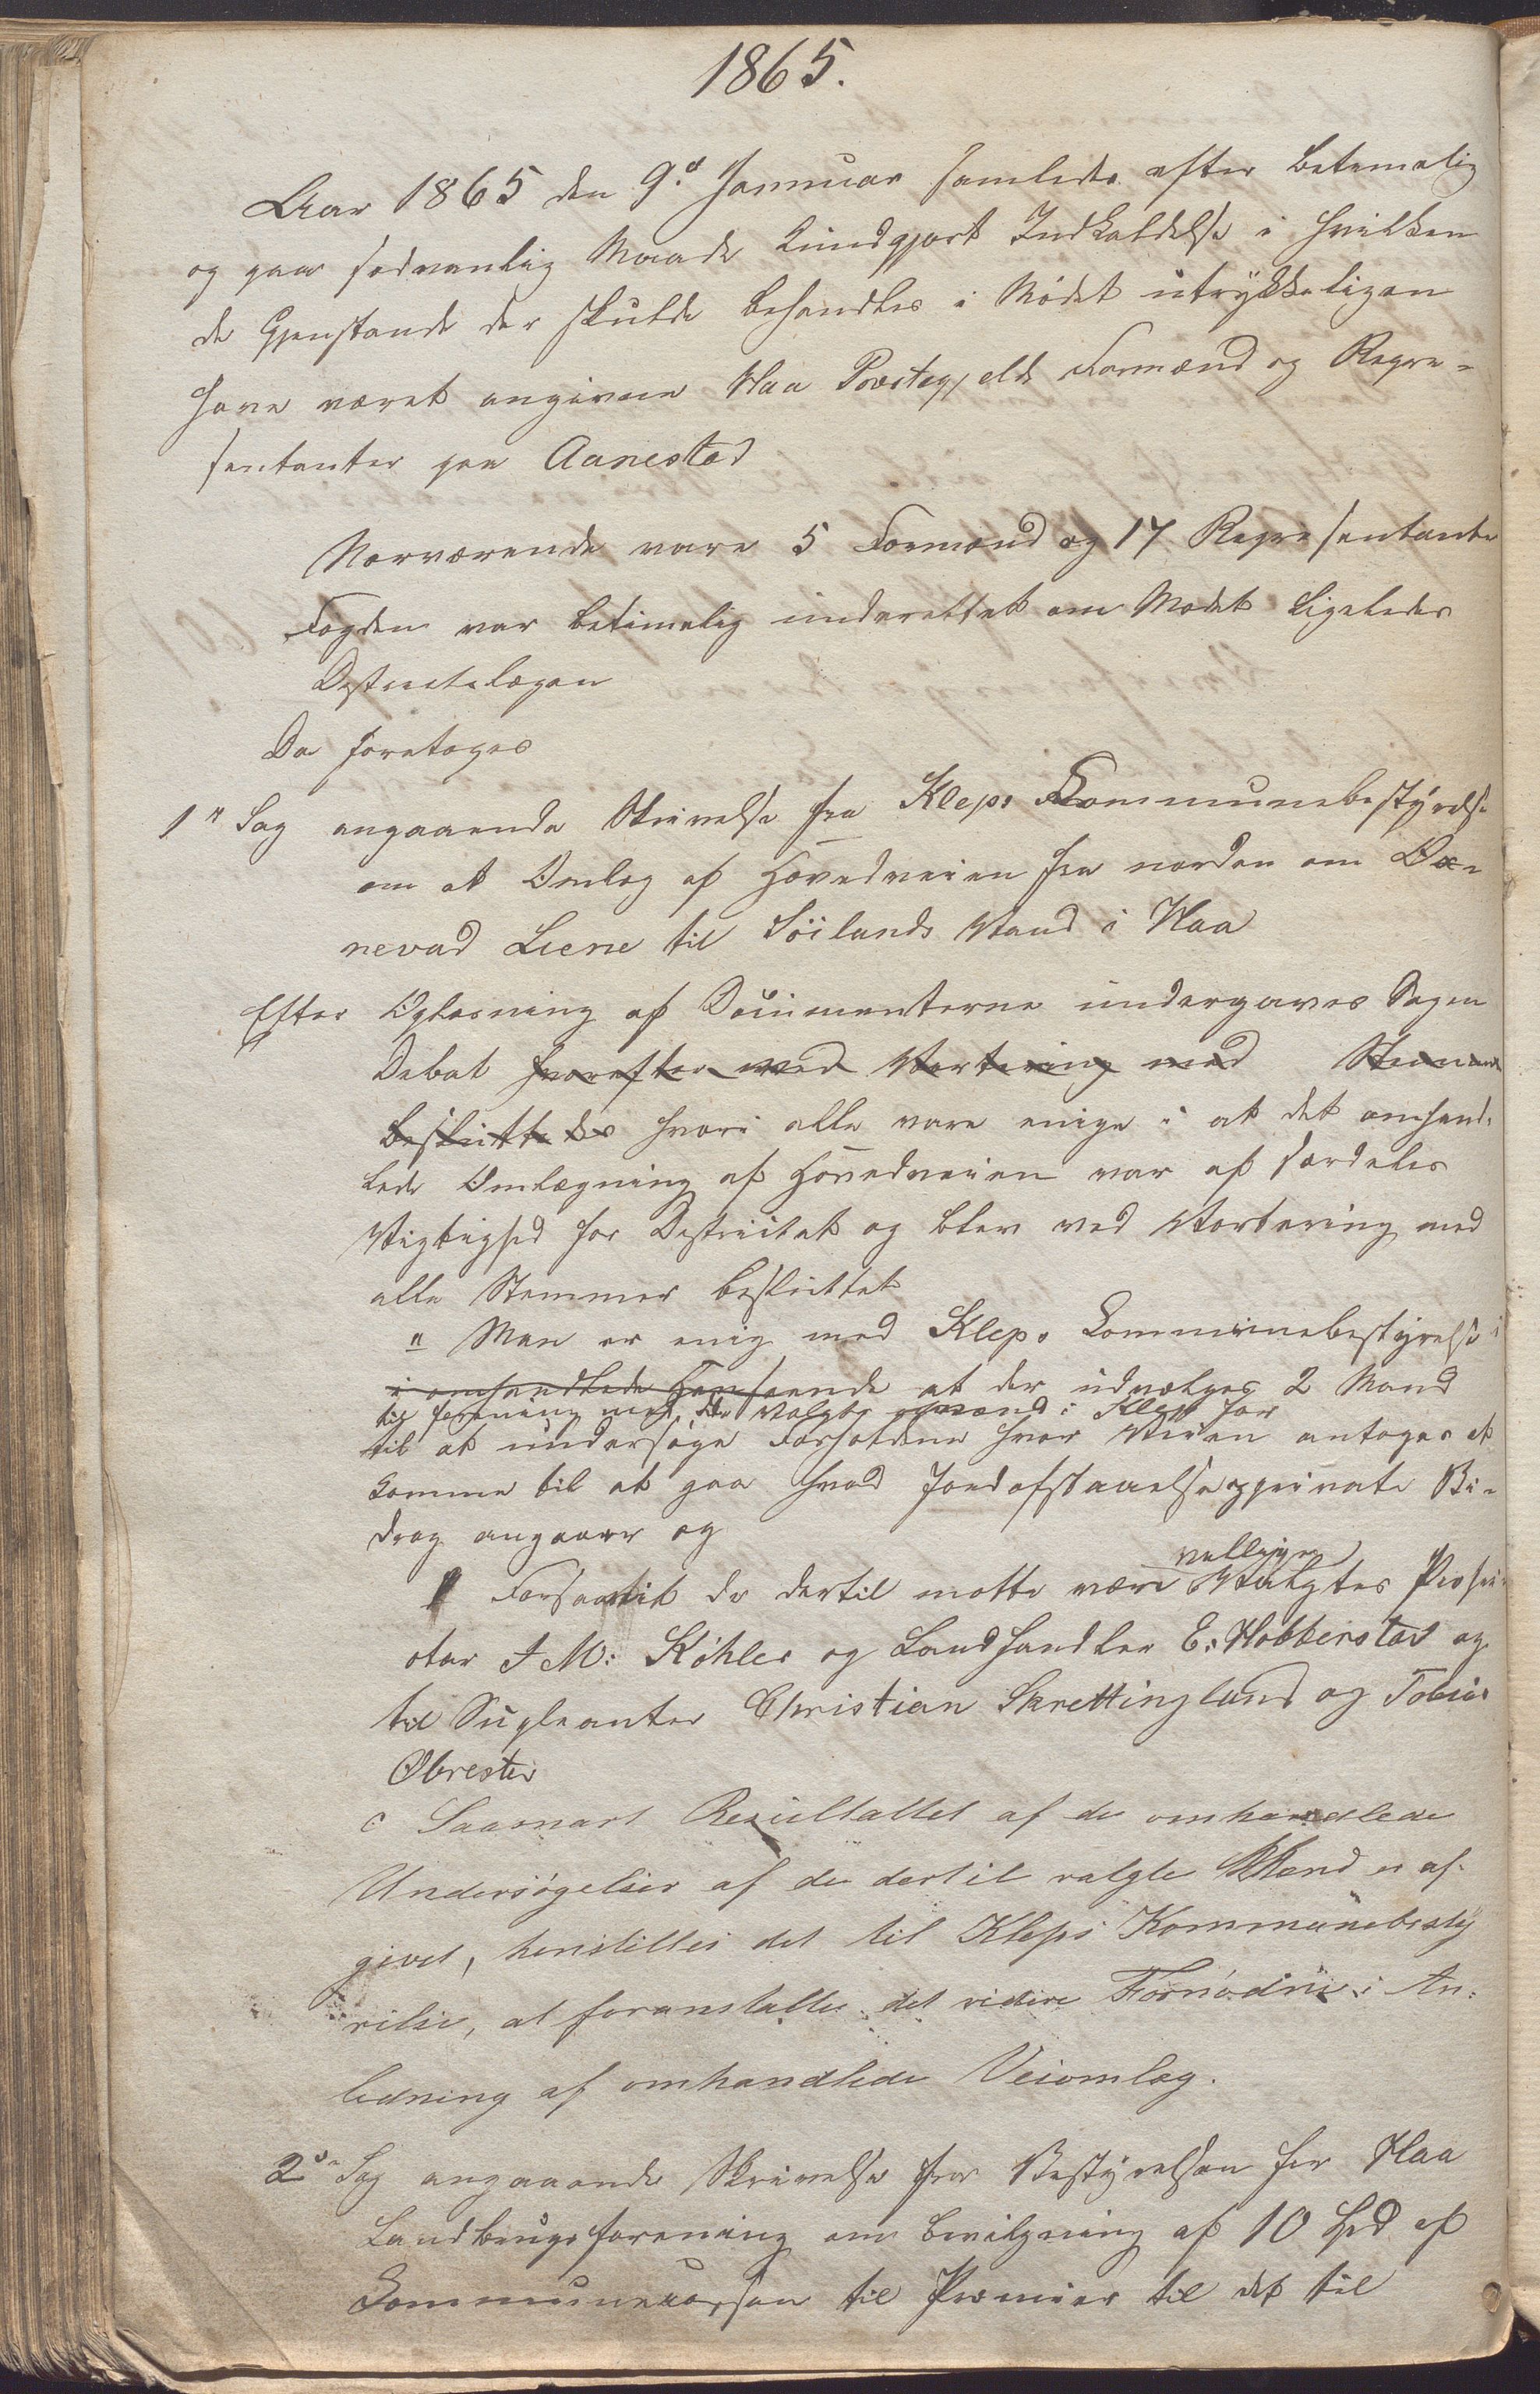 1865.
Aar 1865 den 9.d Januar samledes efter betimelig
og paa sedvanlig Maade kundgjort Indkaldelse i hvilken
de Gjenstande der skulde behandles i Mødet utrykkeligen
have været angivne Haa Præstegjelds Formænd og Repre-
sentanter paa Aanestad
Nærværende vare 5 Formænd og 17 Representante
Fogden var betimelig underettet om Mødet Ligeledes
Destrectslægen
Da foretoges
1" Sag angaaende Skrivelse fra Kleps Kommunebestyrelse
om at Omlæg af Hovedveien fra norden om Oxe-
nevad Leene til Söilands Vand i Haa
Efter Oplæsning af Documenterne undergaves Sagen
Debat hvorefter ved Vortering med Stemmer
besluttedes hvori alle vare enige i at det omhand-
lede Omlægning af Hovedveien var af særdeles
Vigtighed for Destrictet og blev ved Vortering med
alle Stemmer besluttet
a Man er enig med Kleps Kommunebestyrelse i
i omhandlede Henseende at der udvælges 2 Mænd
til forening med de valgte Mænd i Klep for
til at undersøge Forholdene hvor Veien antages at
komme til at gaa hvad Jordafstaaelse og private Bi-
drag angaaer og
Forsaavidt de dertil motte være villige Valgtes
J M: Köhler og Landhandler E. Hobberstad og
til Supleanter Christian Skrettingland og Tobias
Obrestad
c Saasnart Resultattet af de omhandlede
Undersögelser af de dertil valgte Mænd er af-
givet, henstilles det til Kleps Kommunebesty
relse, at foranstalte det videre Fornödne i An-
ledning af omhandlede Veiomlæg.
2d Sag angaaende Skrivelse fra Bestyrelsen for Haa
Landbrugsforening om bevilgning af 10 Spd af
Kommunecassen til Premier til det til